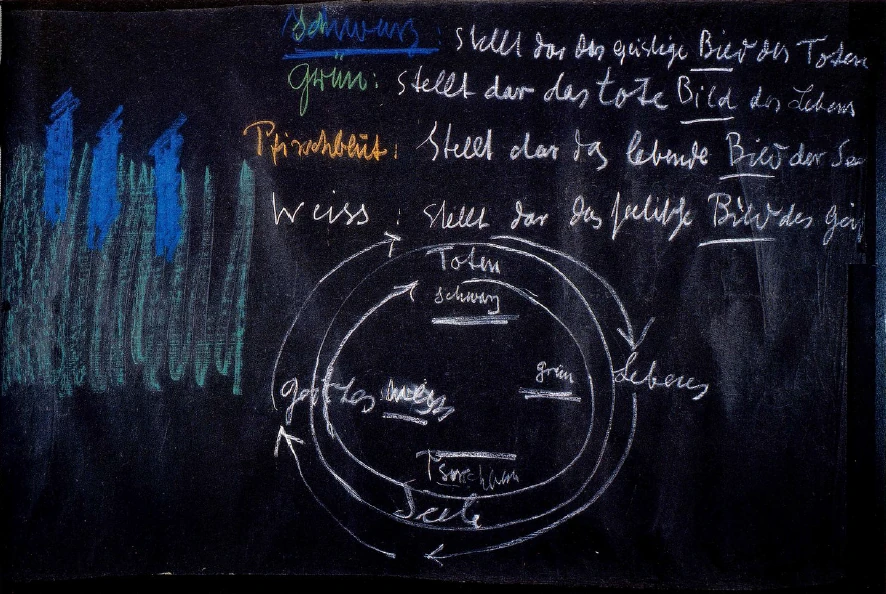 Schwarz : stellt dar das geistige Bild des Toten
Grün : stellt dar das tote Bild des Lebens
Pfirsichblüt : stellt dar das lebende Bild der See
Weiss : stellt dar das seelische Bild des Geis
Toten
schwarz
grün
Lebens
Geistes weiss
Seele